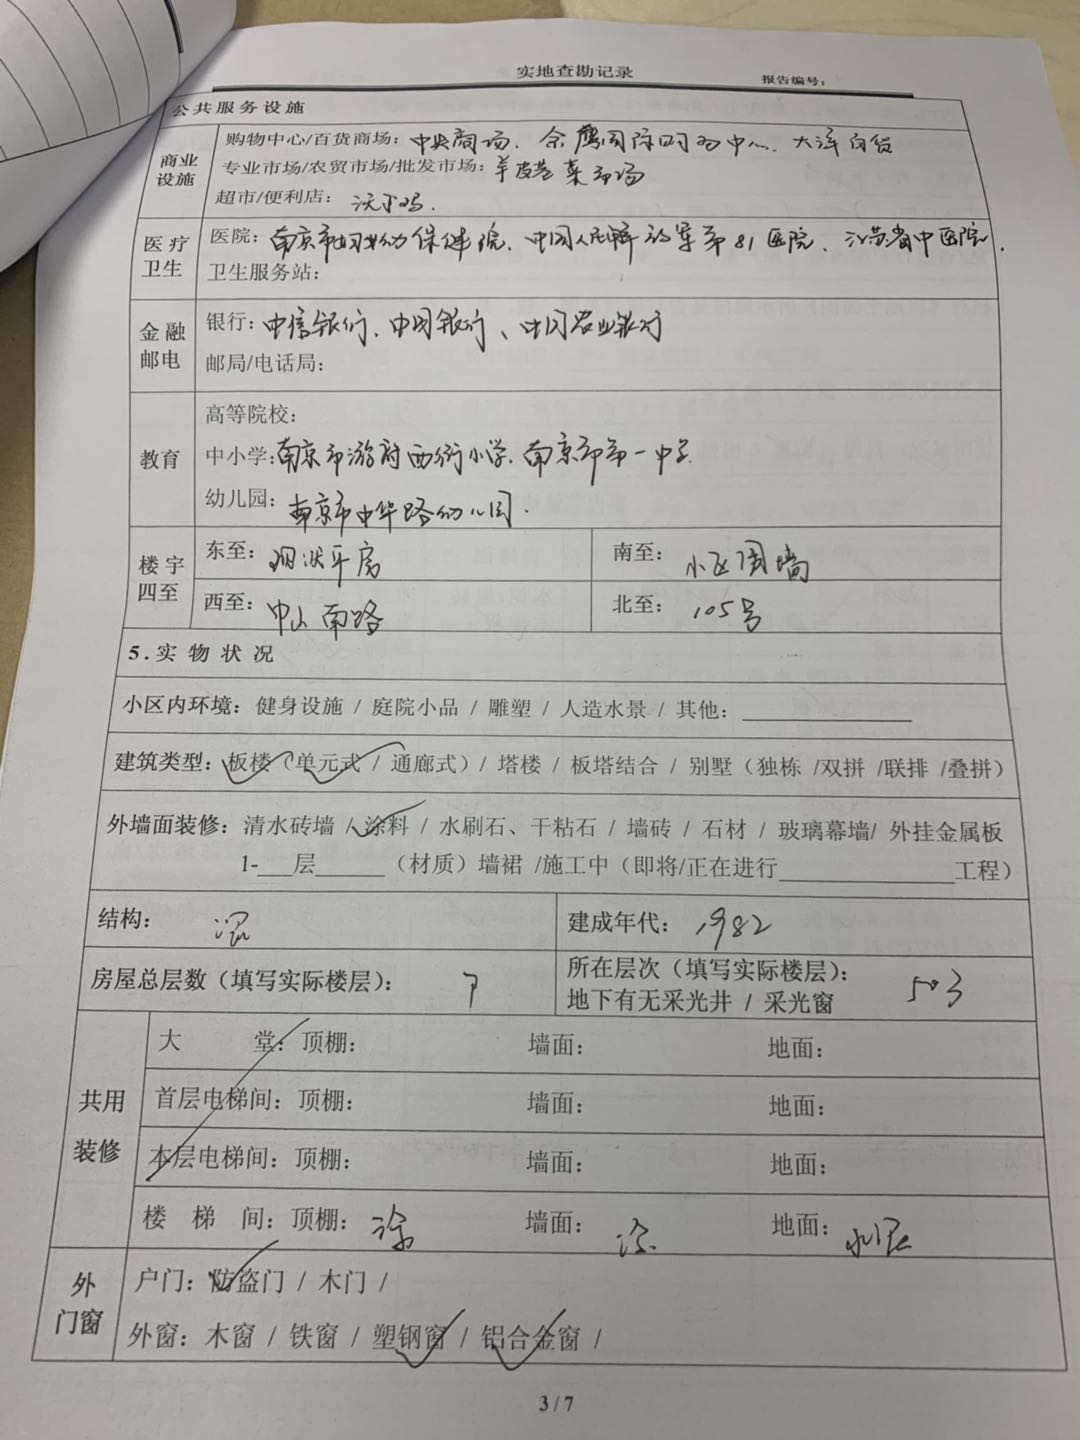 实地查勘记录
报告编号：
公共服务设施
商业设施
购物中心/百货商场：中央商场、金鹰国际购物中心、大洋百货
专业市场/农贸市场/批发市场：羊皮巷菜市场
超市/便利店：沃尔玛.
医疗卫生
医院：南京市妇幼保健院、中国人民解放军第81医院、江苏省中医院.
卫生服务站：
金融邮电
银行：中信银行、中国银行、中国农业银行
邮局/电话局：
教育
高等院校：
中小学：南京市游府西街小学、南京市第一中学
幼儿园：南京市中华路幼儿园.
楼宇四至
东至：现状平房 南至：小区围墙
西至：中山南路 北至：105号
5.实物状况
小区内环境：健身设施 / 庭院小品 / 雕塑 / 人造水景 / 其他：
建筑类型：板楼（单元式 / 通廊式）/ 塔楼 / 板塔结合 / 别墅（独栋 /双拼 /联排 /叠拼）
外墙面装修：清水砖墙 / 涂料 / 水刷石、干粘石 / 墙砖 / 石材 / 玻璃幕墙/ 外挂金属板
1-___层______（材质）墙裙 /施工中（即将/正在进行_______________工程）
结构：混 建成年代：1982
房屋总层数（填写实际楼层）：7 所在层次（填写实际楼层）：503
地下有无采光井 / 采光窗
共用装修
大堂：顶棚： 墙面： 地面：
首层电梯间：顶棚： 墙面： 地面：
本层电梯间：顶棚： 墙面： 地面：
楼梯间：顶棚：涂 墙面：涂 地面：水泥
外门窗
户门：防盗门 / 木门 /
外窗：木窗 / 铁窗 / 塑钢窗 / 铝合金窗 /
3/7